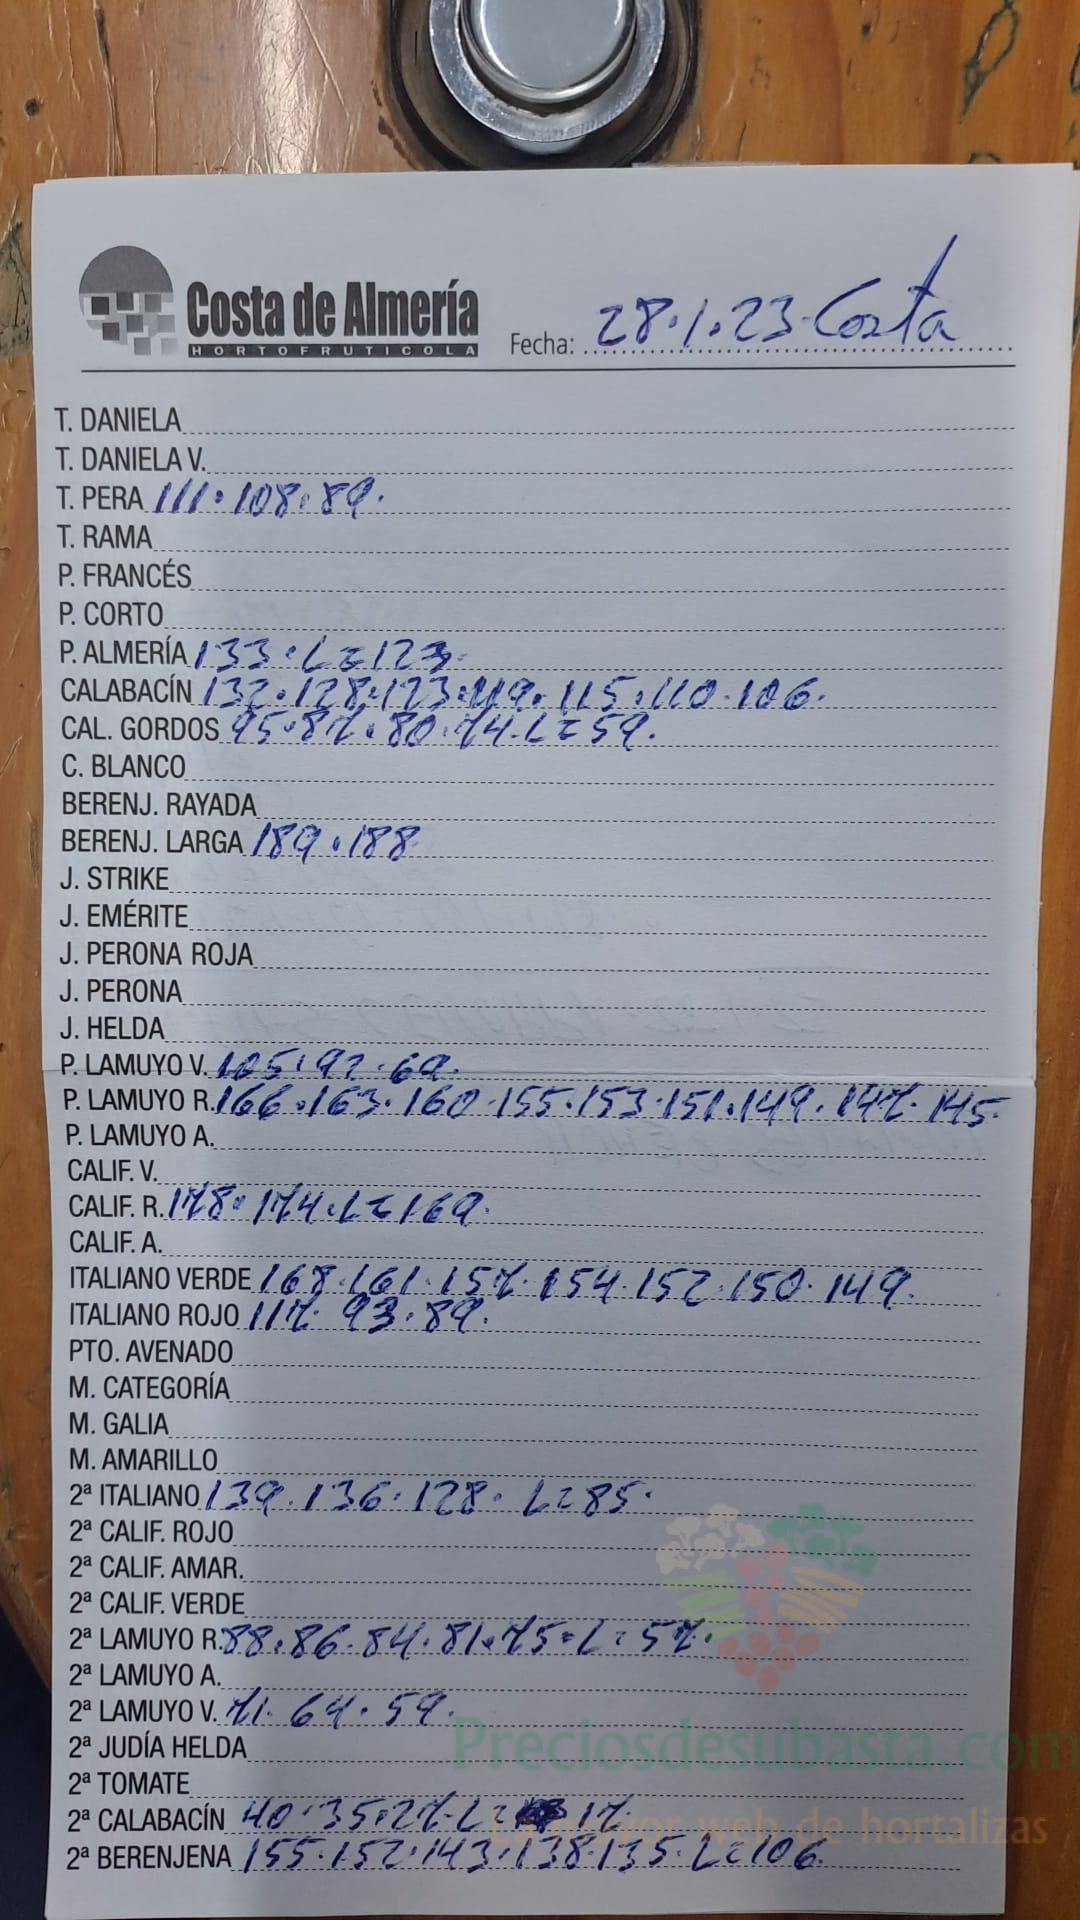 Costa de Almería
HORTOFRUTICOLA
Fecha: 28.1.23 Costa
T. DANIELA
T. DANIELA V.
T. PERA 111.108.89.
T. RAMA
P. FRANCÉS
P. CORTO
P. ALMERÍA 133.L=123.
CALABACÍN 132.128.123.119.115.110.106.
CAL. GORDOS 95.87.80.74.L=59.
C. BLANCO
BERENJ. RAYADA
BERENJ. LARGA 189.188
J. STRIKE
J. EMÉRITE
J. PERONA ROJA
J. PERONA
J. HELDA
P. LAMUYO V. 105.92.69.
P. LAMUYO R. 166.163.160.155.153.151.149.147.145.
P. LAMUYO A.
CALIF. V.
CALIF. R. 178.174.L=169.
CALIF. A.
ITALIANO VERDE 168.161.157.154.152.150.149.
ITALIANO ROJO 117.93.89.
PTO. AVENADO
M. CATEGORÍA
M. GALIA
M. AMARILLO
2ª ITALIANO 139.136.128.L=85.
2ª CALIF. ROJO
2ª CALIF. AMAR.
2ª CALIF. VERDE
2ª LAMUYO R. 88.86.84.81.75.L=57.
2ª LAMUYO A.
2ª LAMUYO V. 71.64.59.
Preciosdesubasta.com
2ª JUDÍA HELDA
2ª TOMATE
2ª CALABACÍN 40.35.27.L=17.
La mejor web de hortalizas
2ª BERENJENA 155.152.143.138.135.L=106.